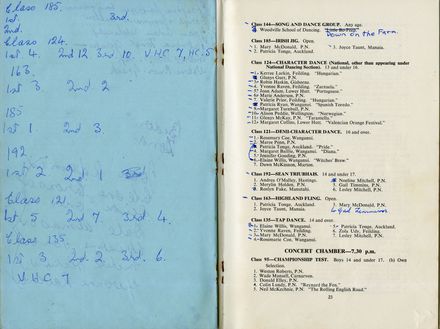 Class 185.
1st. 3rd.
2nd
Class 124.
1st 4. 2nd 12 3rd 10. V.H.C 7, H.C. 5
163.
1st 3 2nd 2
185
1st 1 2nd 3
192
1st 2 2nd 1 3rd
Class 121.
1st. 5 2nd 7 3rd 4.
Class 135.
1st 3 2nd. 2 3rd. 6.
V.H.C. 7
Class 144—SONG AND DANCE GROUP. Any age.
Woodville School of Dancing. "Little Bo-Peep."
Down on the Farm.
Class 185—IRISH JIG. Open.
1. Mary McDonald, P.N.
2. Patricia Tonge, Auckland.
3. Joyce Taunt, Manaia.
Class 124—CHARACTER DANCE (National, other than appearing under National Dancing Section). 13 and under 16.
1. Kerree Lockin, Feilding. "Hungarian."
2. Glenys Guet, P.N.
3. Robin Haskins, P.N.
4. Yvonne Raven, Feilding. "Zarzuela."
5. Jean Adam, Lower Hutt. "Portuguese."
6. Marie Anderson, P.N.
7. Valerie Prior, Feilding. "Hungarian."
8. Patricia Ryan, Wanganui. "Spanish Toredo."
9. Margaret Turnbull, P.N.
10. Alison Peddie, Wellington. "Norwegian."
11. Glenys McKay, P.N. "Tarantella."
12. Margaret Collins, Lower Hutt. "Valencian Orange Festival."
Class 121—DEMI-CHARACTER DANCE. 16 and over.
1. Rosemary Coe, Wanganui.
2. Maree Poian, P.N.
3. Patricia Tonge, Auckland. "Pride."
4. Margaret Baillie, Wanganui. "Diana."
5. Jennifer Gooding, P.N.
6. Elaine Willis, Wanganui. "Witches' Brew."
7. Dawn McKenzie, Marton.
Class 192—SEAN TRIUBHAIS. 14 and under 17.
1. Andrea O'Malley, Hastings.
2. Merylin Holden, P.N.
3. Roslyn Fake, Manutahi.
4. Noeline Mitchell, P.N.
5. Gail Timmins, P.N.
6. Lesley Mitchell, P.N.
Class 163—HIGHLAND FLING. Open.
1. Patricia Tonge, Auckland.
2. Joyce Taunt, Manaia.
3. Mary McDonald, P.N.
Class 135—TAP DANCE. 14 and over.
1. Elaine Willis, Wanganui.
2. Yvonne Raven, Feilding.
3. Mary McDonald, P.N.
4. Rosemary Coe, Wanganui.
5. Patricia Tonge, Auckland.
6. Zola Ude, Feilding.
7. Lesley Mitchell, P.N.
CONCERT CHAMBER—7.30 p.m.
Class 95—CHAMPIONSHIP TEST. Boys 14 and under 17. (b) Own Selection.
1. Weston Roberts, P.N.
2. Wade Mansell, Carnarvon.
3. Donald Elley, P.N.
4. Colin Lundy, P.N. "Reynard the Fox."
5. Neil McKechnie, P.N. "The Rolling English Road."
23